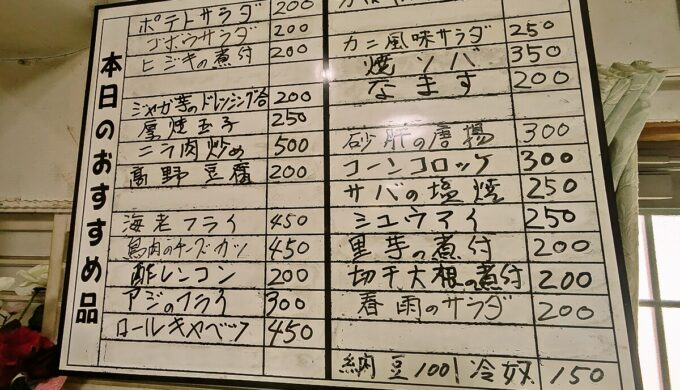 本日のおすすめ品
ポテトサラダ 200
ゴボウサラダ 200
ヒジキの煮付 200
ジャガ芋のドレッシング合 200
厚焼玉子 250
ニラ肉炒め 500
高野豆腐 200
海老フライ 450
鳥肉のチーズカツ 450
酢レンコン 200
アジのフライ 300
ロールキャベツ 450
カニ風味サラダ 250
焼ソバ 350
なます 200
砂肝の唐揚 300
コーンコロッケ 300
サバの塩焼 250
シュウマイ 250
里芋の煮付 200
切干大根の煮付 200
春雨のサラダ 200
納豆100 冷奴 150